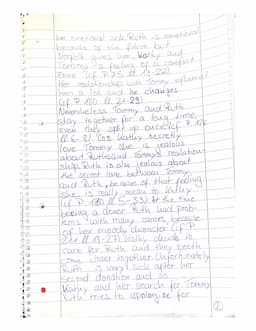 her emotional side Ruth is emotional
because of the future but
Norfolk gives her, Kathy and
Tommy a feeling of a comfort
zone (cf. P. 75 ll. 19-22)
Her relationship with Tommy
him a lot and he changes
(cf. P. 100 ll. 21-29)
Nevertheless Tommy and Ruth
stay together for a long time,
even they split up once (cf. P.
ll. 6-8) Cos Kathy secretly
love Tommy she is jealous
about Ruths and Tommy's relation-
ship. Ruth is also jealous about
the secret love between Tommy
and Ruth, because of that feeling
she is really mean to Kathy
(cf. P. ll. 5-33). At the time
being a donor Ruth had prob-
lems with many carers, because
of her moody character (cf. P.
ll. 17-27). Kathy decide to
care for Ruth and they both
come closer together. Unfortunately
Ruth is very sick after her
second donation and so
Kathy and her search for Tommy
Ruth tries to apologize for
2